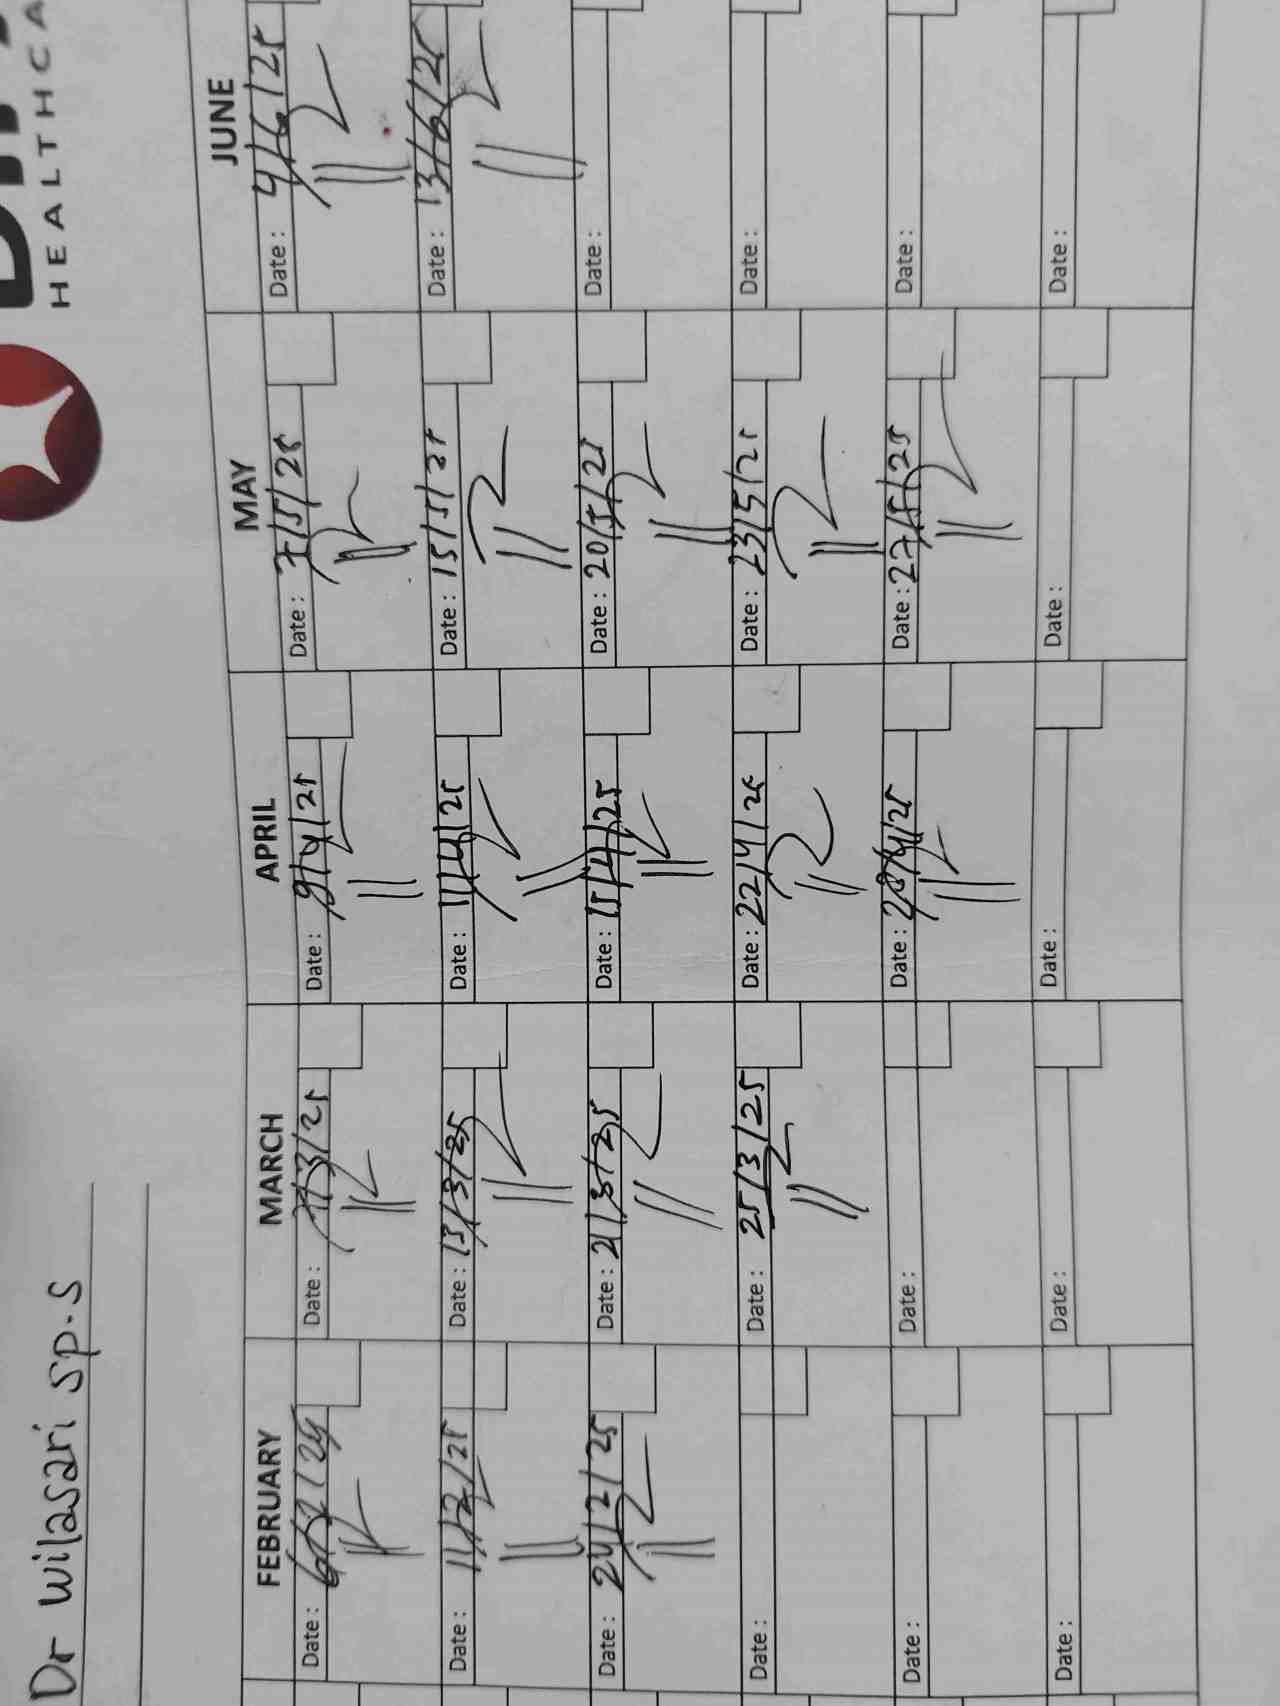 HEALTHCA
Dr Wilasari Sp.S
FEBRUARY MARCH APRIL MAY JUNE
Date : Date : Date : 9/4/25 Date : 7/5/25 Date : 4/6/25
Date : 11/2/25 Date : 13/3/25 Date : 11/4/25 Date : 15/5/25 Date : 13/6/25
Date : 24/2/25 Date : 21/3/25 Date : 15/4/25 Date : 20/5/25 Date :
Date : Date : 25/3/25 Date : 22/4/25 Date : 23/5/25 Date :
Date : Date : Date : 28/4/25 Date : 27/5/25 Date :
Date : Date : Date : Date : Date :